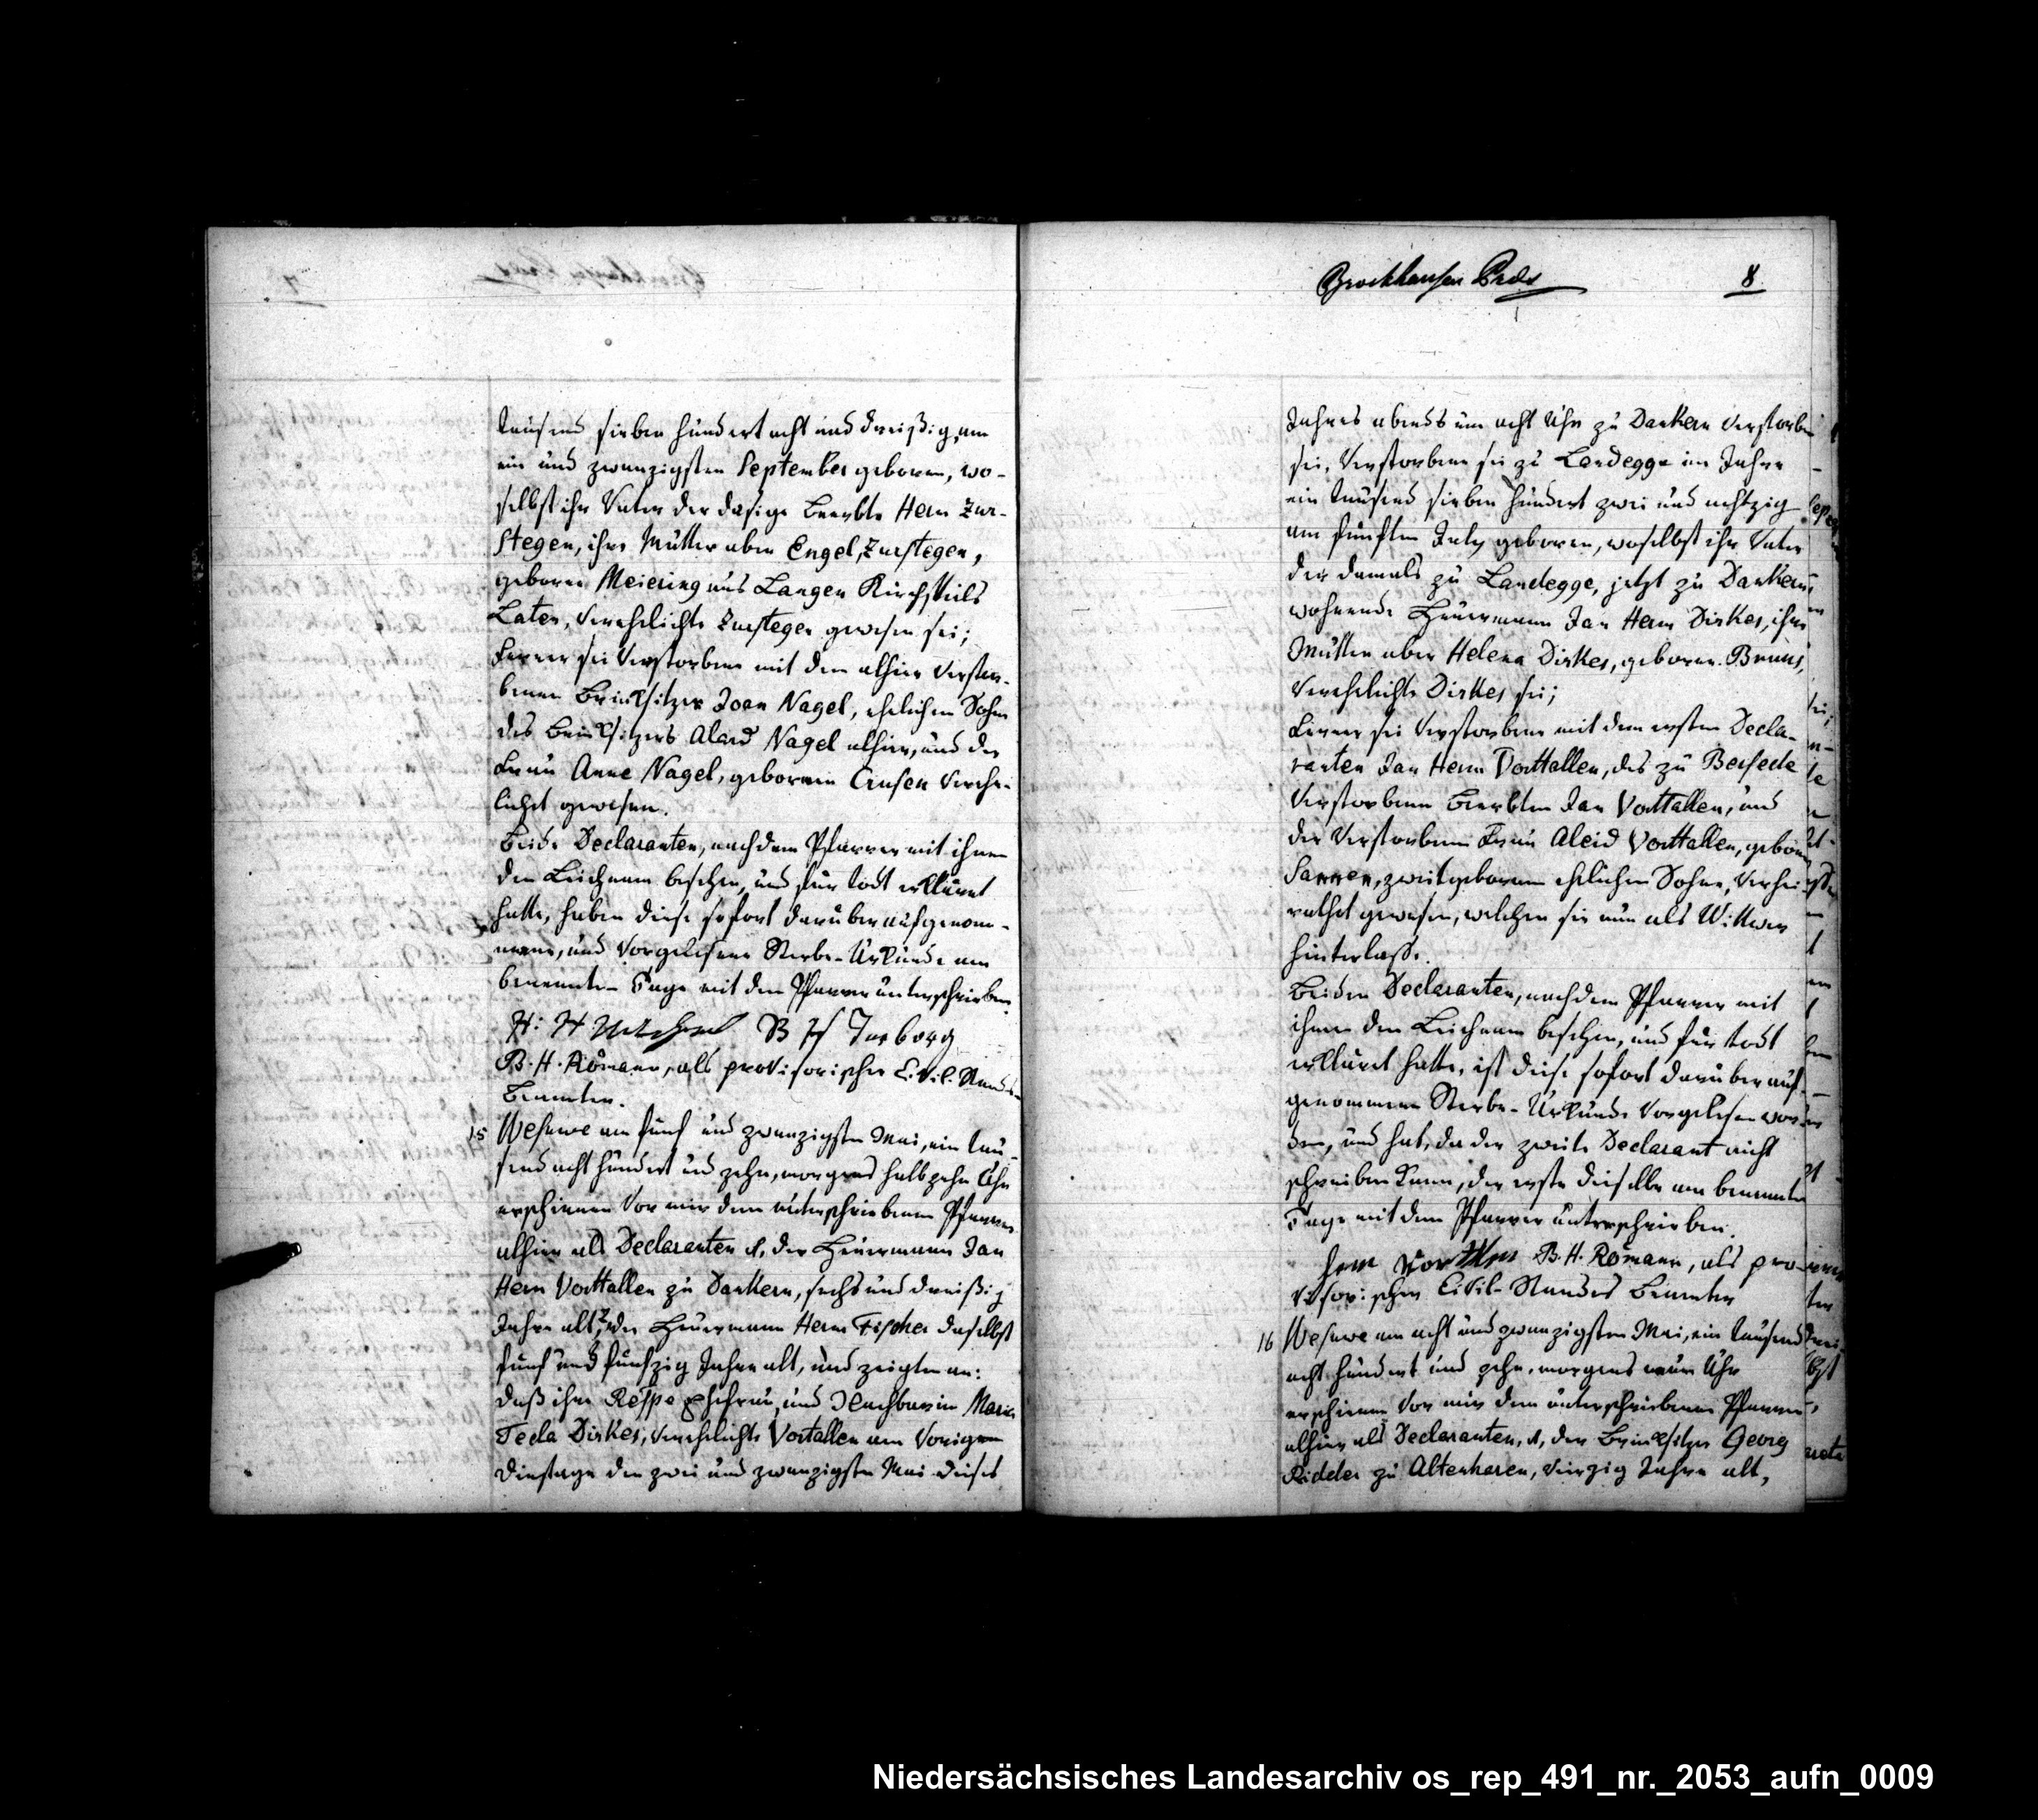 tausend sieben hundert acht und dreißig, am
ein und zwanzigsten September geboren, wo-
selbst ihr Vater der dasige Beerbte Herm Zur-
Stegen, ihre Mutter aber Engel, Zurstegen,
geborne Meiering aus Langen Kirchspiels
Laten, Verehelichte Zurstegen gewesen sei;
Ferner sei Verstorbene mit dem alhier Verstor-
benen Brinksitzer Joan Nagel, ehelichen Sohn
des Brinksitzers Alard Nagel alhier, und der
Frau Anne Nagel, gebornen Crusen Verehe-
lichet gewesen.
Beide Declaranten, nachdem Pfarrer mit ihnen
den Leichnam besehen, und für todt erkläret
hatte, haben diese sofort darüber aufgenom-
mene, und vorgelesene Sterbe-Urkunde am
benannten Tage mit dem Pfarrer unterschrieben.
H: H B H Terborg
B. H. Römann, als provisorischer Civil-Standes-
Beamter.
15 Wesuwe am fünf und zwanzigsten Mai, ein tau-
send acht hundert und zehn, morgens halb zehn Uhr
erschienen vor mir dem unterschriebenen Pfarrer
alhier als Declaranten 1, der Heuermann Jan
Herm Vorttallen zu Dankern, sechs und dreißig
Jahre alt, 2, der Heuermann Herm Fischer daselbst
fünf und fünfzig Jahre alt, und zeigten an:
daß ihre Respe Ehefrau, und Nachbarin Maria
Tecla Dirkes, Verehelichte Vortallen am vorigen
Dienstage den zwei und zwanzigsten Mai dieses
Brockhausen Präs
8
Jahres abends um acht Uhr zu Dankern verstorben
sei, Verstorbene sei zu Landegge im Jahre
ein tausend sieben hundert zwei und achtzig
am fünften July geboren, woselbst ihr Vater
der damals zu Landegge, jetzt zu Dankern
wohnende Heuermann Jan Herm Dirkes, ihre
Mutter aber Helena Dirkes, geborne Bruns,
Verehelichte Dirkes sei;
Ferner sei Verstorbene mit dem ersten Decla-
ranten Jan Herm Vorttallen, des zu Bersede
Verstorbenen Beerbten Jan Vorttallen, und
der Verstorbenen Frau Aleid Vorttallen, geborne
Sannen, zweitgebornen ehelichen Sohne, Verhei-
rathet gewesen, welchen sie nun als Wittwer
hinterlasse.
Beiden Declaranten, nachdem Pfarrer mit
ihnen den Leichnam besehen, und für todt
erkläret hatte, ist diese sofort darüber auf-
genommene Sterbe-Urkunde vorgelesen wor-
den, und hat, da der zweite Declarant nicht
schreiben kann, der erste dieselbe am benannten
Tage mit dem Pfarrer unterschrieben.
B. H. Römann, als pro-
visorischer Civil-Standes Beamter
16 Wesuwe am acht und zwanzigsten Mai, ein tausend
acht hundert und zehn, morgens neun Uhr
erschienen vor mir dem unterschriebenen Pfarrer
alhier als Declaranten, 1, der Brinksitzer Georg
Ridder zu Altenharen, vierzig Jahre alt,
Niedersächsisches Landesarchiv os_rep_491_nr._2053_aufn_0009